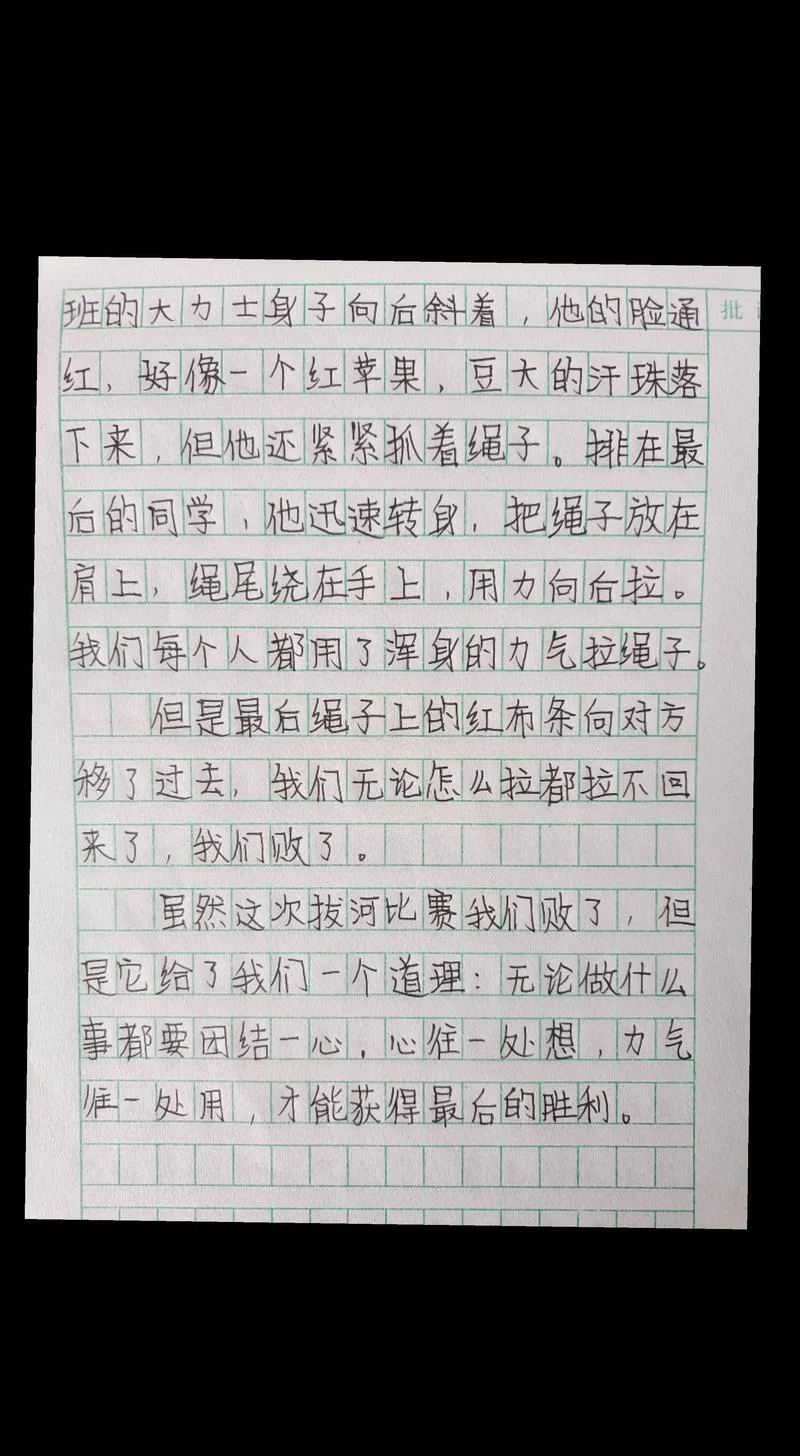 班的大力士身子向后斜着，他的脸通
批
红，好像一个红苹果，豆大的汗珠落
下来，但他还紧紧抓着绳子。排在最
后的同学，他迅速转身，把绳子放在
肩上，绳尾绕在手上，用力向后拉。
我们每个人都用了浑身的力气拉绳子。
但是最后绳子上的红布条向对方
移了过去，我们无论怎么拉都拉不回
来了，我们败了。
虽然这次拔河比赛我们败了，但
是它给了我们一个道理：无论做什么
事都要团结一心，心往一处想，力气
往一处用，才能获得最后的胜利。